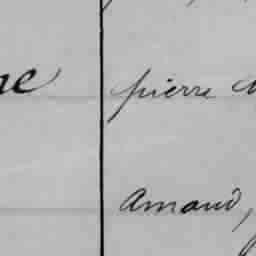 pierre
Amand,